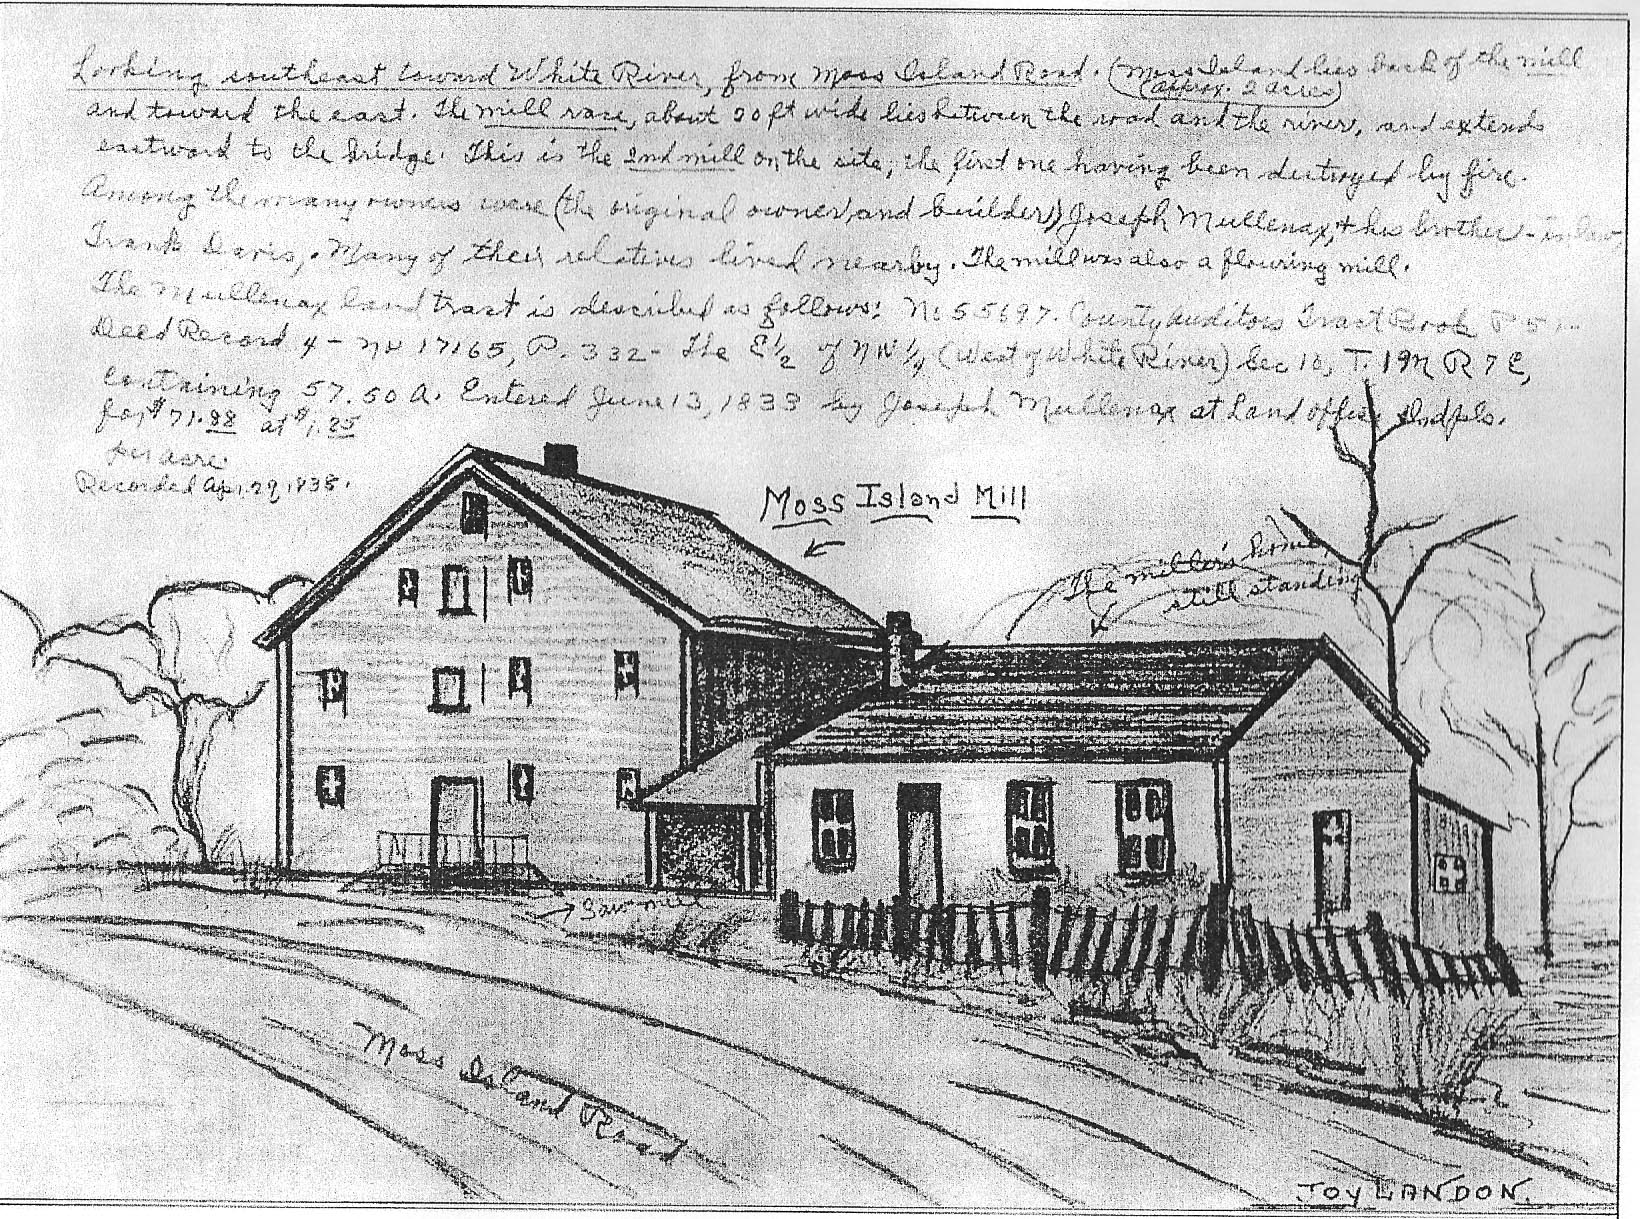 Looking southeast toward White River, from Moss Island Road. (Moss Island lies back of the mill
(approx. 2 acres)
and toward the east. The mill race, about 20 ft wide lies between the road and the river, and extends
eastward to the bridge. This is the 2nd mill on the site, the first one having been destroyed by fire.
Among the many owners were (the original owner, and builder) Joseph Mullenax, & his brother-in-law,
Frank Davis,. Many of their relatives lived nearby. The mill was also a flouring mill.
The Mullenax land tract is described as follows: No 55697. County Auditors Tract Book P 51-
Deed Record 4 - No 17165, P. 332 - The E 1/2 of NW 1/4 (West of White River) Sec 10, T. 19N R 7 E,
containing 57.50 A. Entered June 13, 1833 by Joseph Mullenax at Land office Indpls.
for $71.88 at $1.25
per acre
Recorded Apr. 29, 1838.
Moss Island Mill
The miller's home,
still standing
Saw mill
Moss Island Road
JOY LANDON.